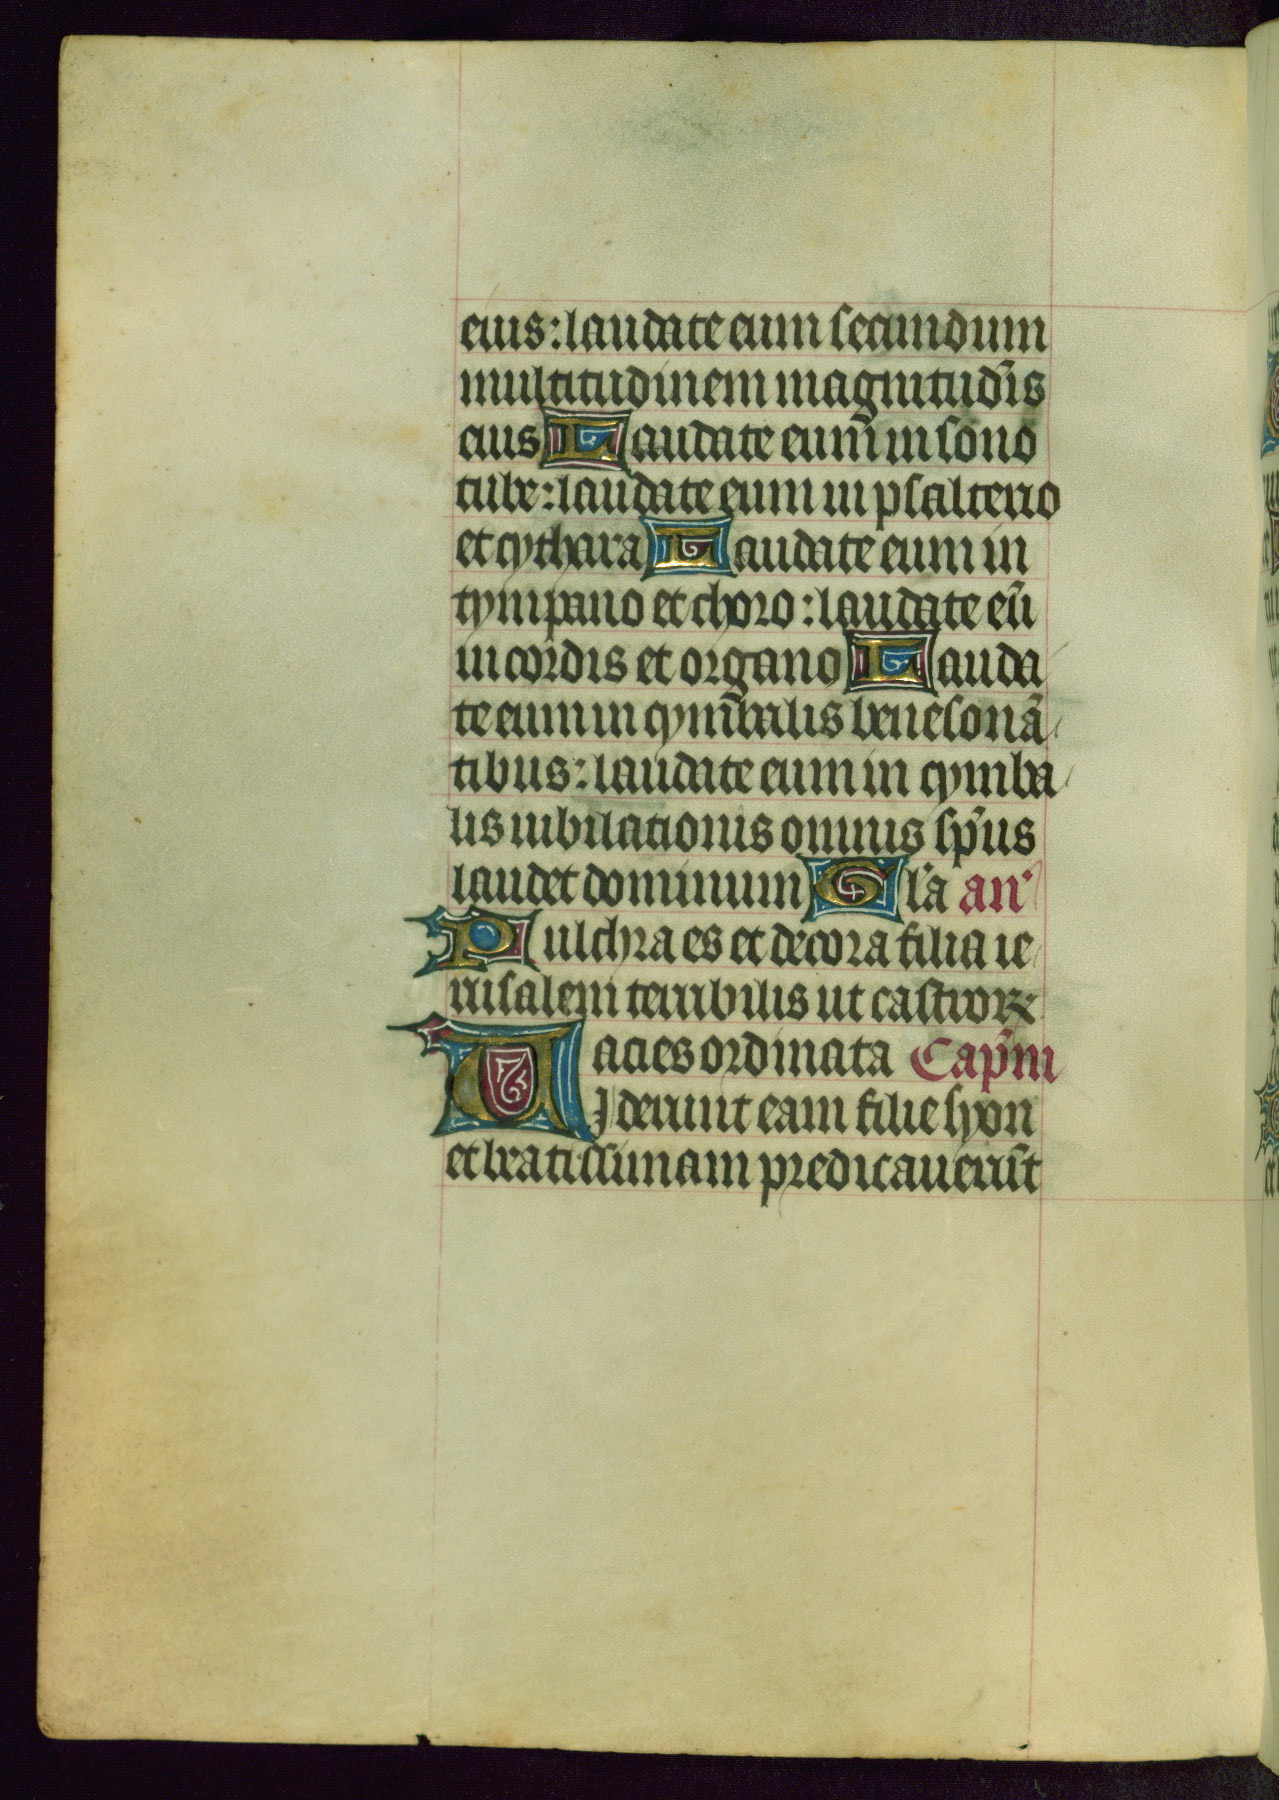 eius: laudate eum secundum
multitudinem magnitudīs
eius Laudate eum̄ in sono
tube: laudate eum in psalterio
et cythara Laudate eum in
tympano et choro: laudate eū
in cordis et organo Lauda
te eum in cym̄balis benesonā
tibus: laudate eum in cymba
lis iubilationis omnis sp̄us
laudet dominum Gl'a an'
Pulchra es et decora filia ie
rusalem terribilis ut castroꝝ
acies ordinata Cap̄m
Viderunt eam filie syon
et beatissimam predicauerūt